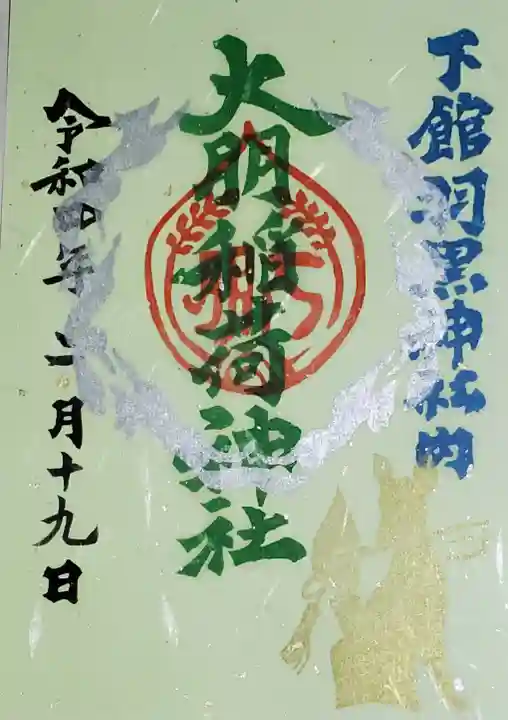 下館羽黒神社内
大明稲荷神社
令和四年二月十九日